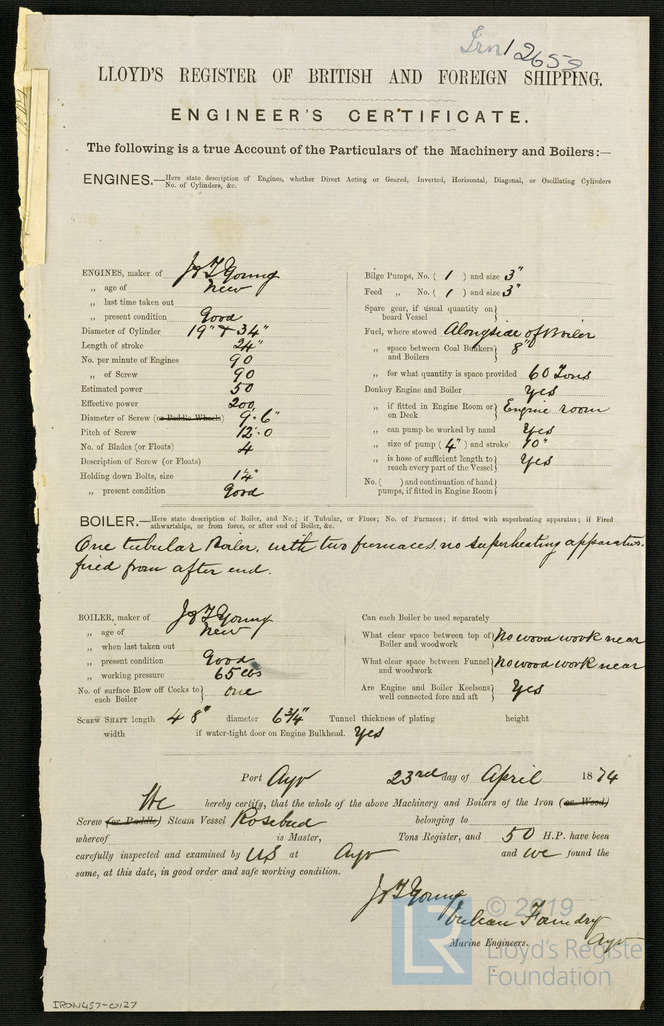 Iron 12659
LLOYD'S REGISTER OF BRITISH AND FOREIGN SHIPPING.
ENGINEER'S CERTIFICATE.
The following is a true Account of the Particulars of the Machinery and Boilers:—
ENGINES.—Here state description of Engines, whether Direct Acting or Geared, Inverted, Horizontal, Diagonal, or Oscillating Cylinders
No. of Cylinders, &c.
ENGINES, maker of J & T Young
„ age of New
„ last time taken out
„ present condition Good
Diameter of Cylinder 19" & 34"
Length of stroke 24"
No. per minute of Engines 90
„ of Screw 90
Estimated power 50
Effective power 200
Diameter of Screw (or Paddle Wheels) 9·6"
Pitch of Screw 12·0
No. of Blades (or Floats) 4
Description of Screw (or Floats)
Holding down Bolts, size 1¼"
„ present condition Good
Bilge Pumps, No. ( 1 ) and size 3"
Feed „ No. ( 1 ) and size 3"
Spare gear, if usual quantity on
board Vessel
Fuel, where stowed Alongside of Boiler
„ space between Coal Bunkers
and Boilers 8"
„ for what quantity is space provided 60 Tons
Donkey Engine and Boiler Yes
„ if fitted in Engine Room or
on Deck Engine room
„ can pump be worked by hand Yes
„ size of pump ( 4" ) and stroke 10"
„ is hose of sufficient length to
reach every part of the Vessel Yes
No. ( ) and continuation of hand
pumps, if fitted in Engine Room
BOILER.—Here state description of Boiler, and No.; if Tubular, or Flues; No. of Furnaces; if fitted with superheating apparatus; if Fired
athwartships, or from force, or after end of Boiler, &c.
One tubular Boiler, with two furnaces. no superheating apparatus.
fired from after end.
BOILER, maker of J & T Young
„ age of New
„ when last taken out
„ present condition Good
„ working pressure 65 lbs
No. of surface Blow off Cocks to
each Boiler one
Can each Boiler be used separately
What clear space between top of
Boiler and woodwork No wood work near
What clear space between Funnel
and woodwork No wood work near
Are Engine and Boiler Keelsons
well connected fore and aft Yes
SCREW SHAFT length 4 8" diameter 6¾" Tunnel thickness of plating height
width if water-tight door on Engine Bulkhead. Yes
Port Ayr 23rd day of April 1874
We hereby certify, that the whole of the above Machinery and Boilers of the Iron (or Wood)
Screw (or Paddle) Steam Vessel Rosebud belonging to
whereof is Master, Tons Register, and 50 H.P. have been
carefully inspected and examined by us at Ayr and we found the
same, at this date, in good order and safe working condition.
J & T Young
Vulcan Foundry
Marine Engineers. Ayr
LR
© 2019
Lloyd's Register
Foundation
IRON457-0127